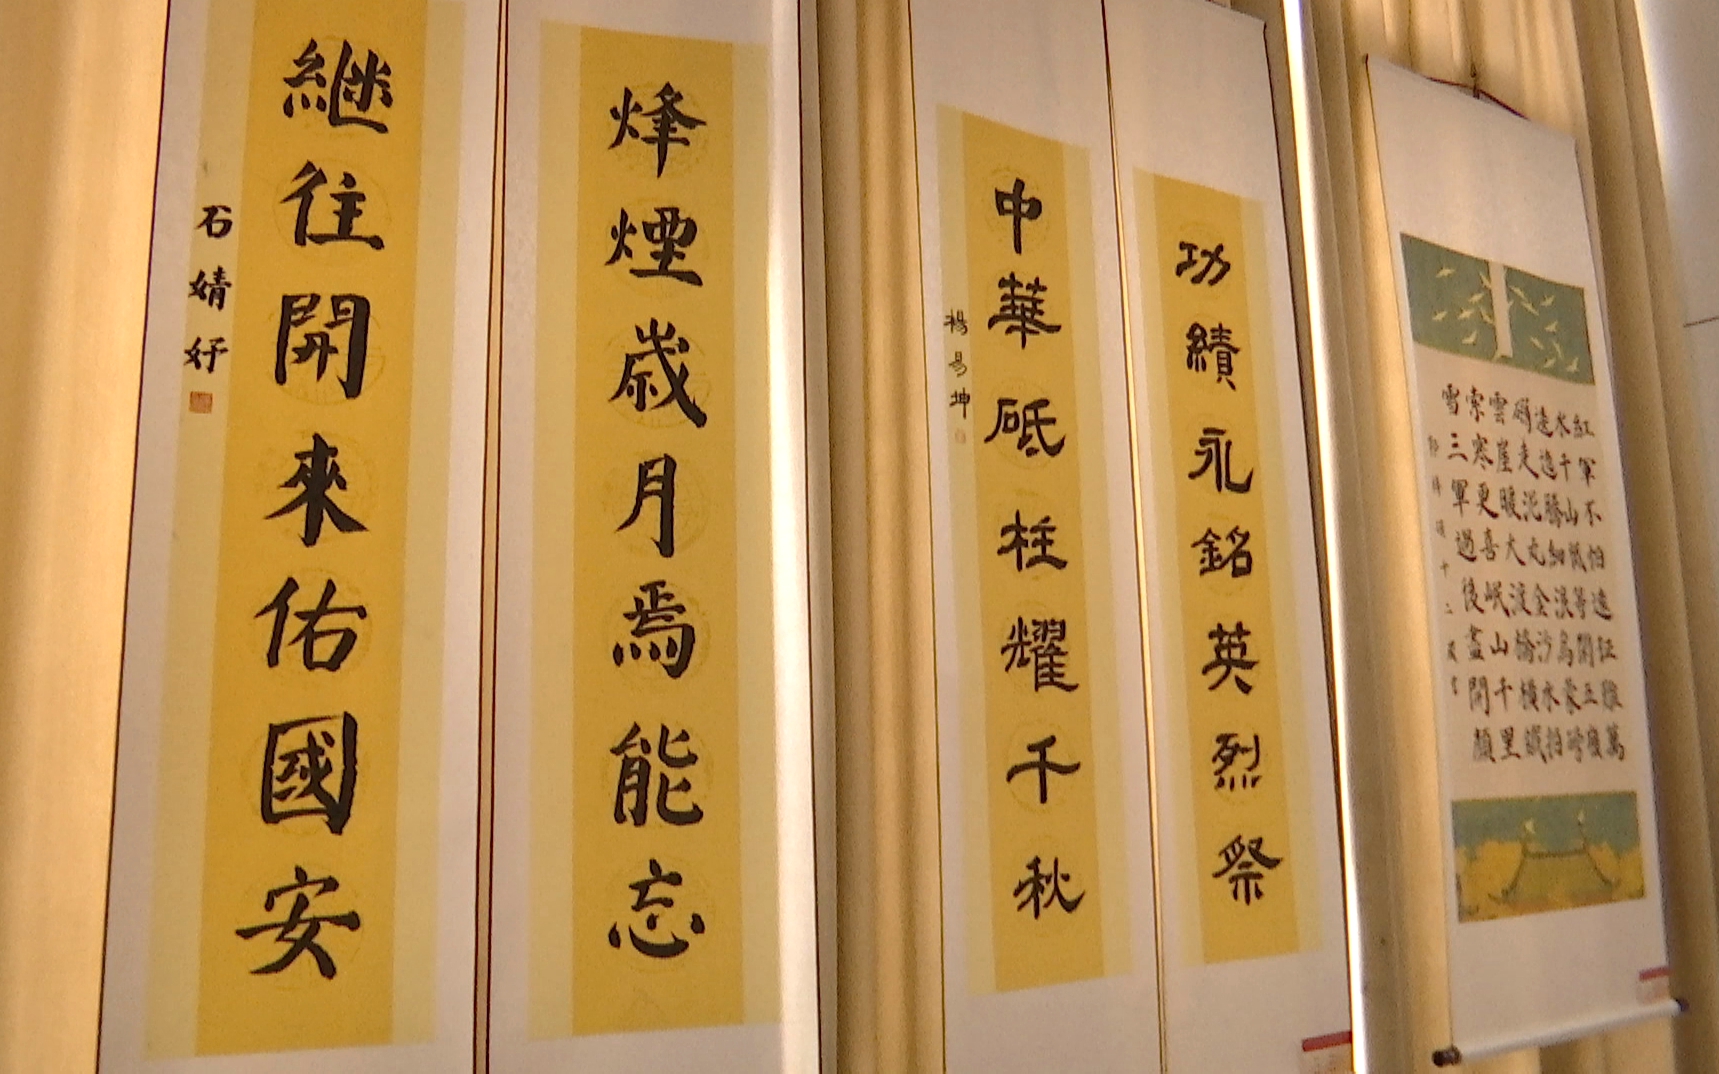 紅軍不怕遠征難萬
水千山祗等閒五嶺
逶迤騰細浪烏蒙磅
礴走泥丸金沙水拍
雲崖暖大渡橋橫鐵
索寒更喜岷山千里
雪三軍過後盡開顏
十二歲書
功績永銘英烈祭
中華砥柱耀千秋
楊易坤
烽煙歲月焉能忘
継往開來佑國安
石婧妤